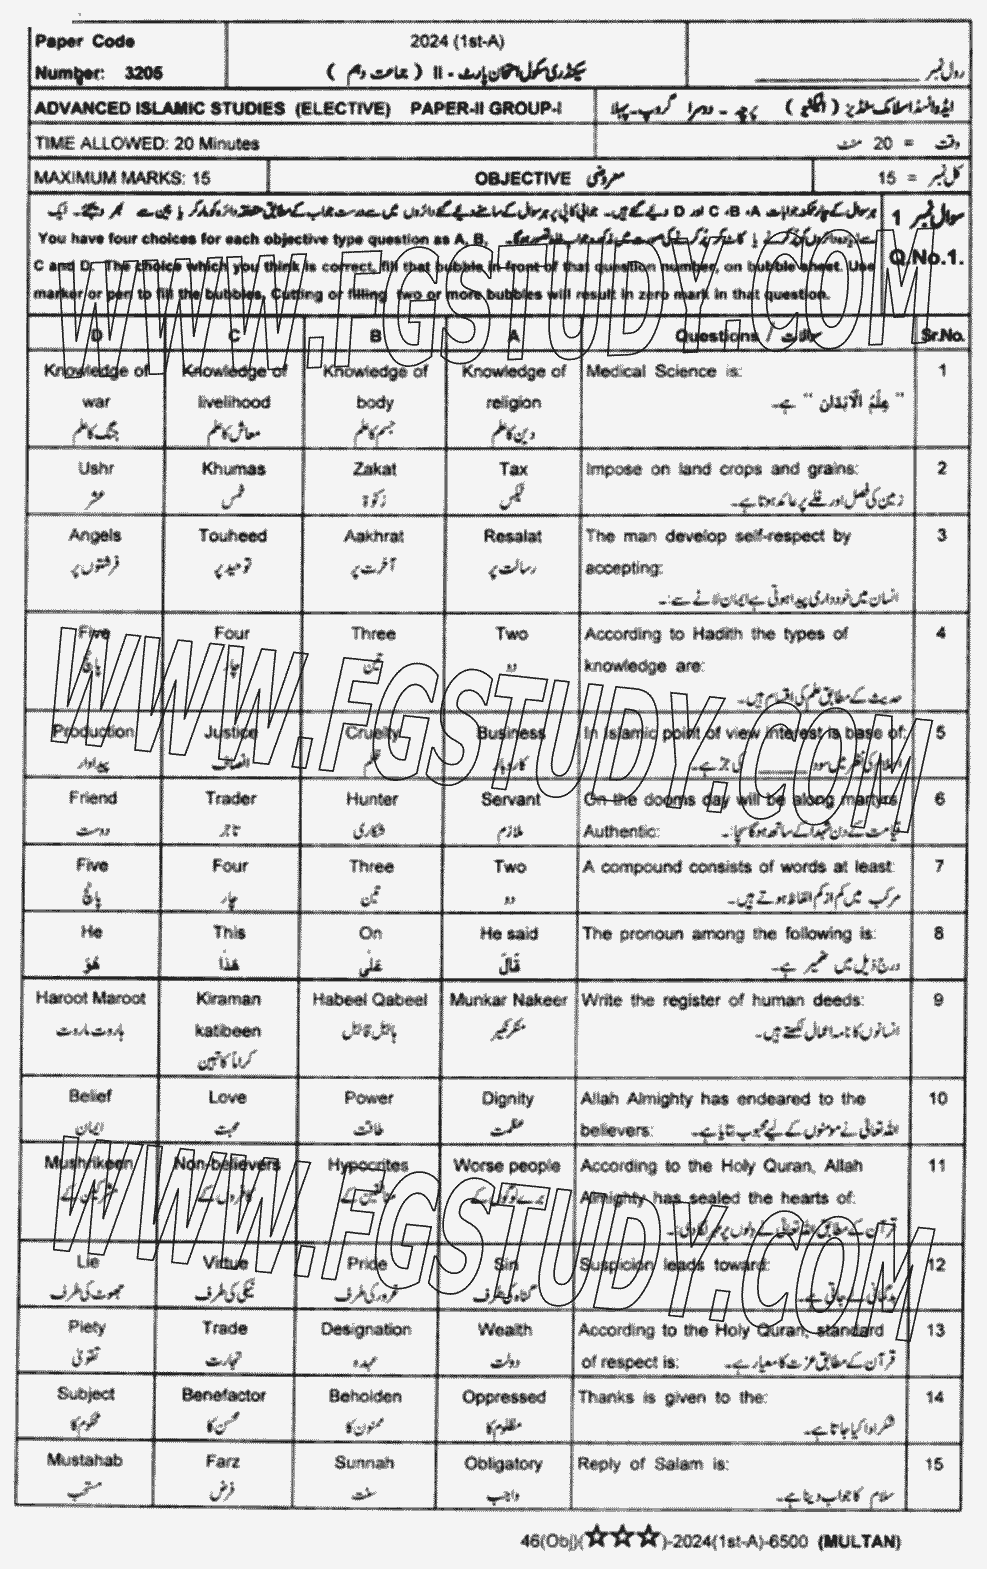 Paper Code 2024 (1st-A)
Number: 3205 سیکنڈری سکول امتحان پارٹ - II ( جماعت دہم ) رول نمبر
ADVANCED ISLAMIC STUDIES (ELECTIVE) PAPER-II GROUP-I ایڈوانسڈ اسلامک سٹڈیز ( الیکٹیو ) پرچہ - دوسرا گروپ - پہلا
TIME ALLOWED: 20 Minutes وقت = 20 منٹ
MAXIMUM MARKS: 15 OBJECTIVE معروضی کل نمبر = 15
سوال نمبر 1
You have four choices for each objective type question as A, B,
C and D. The choice which you think is correct, fill that bubble in front of that question number, on bubble sheet. Use Q.No.1.
marker or pen to fill the bubbles. Cutting or filling two or more bubbles will result in zero mark in that question.
D C B A Questions / سوالات Sr.No.
Knowledge of Knowledge of Knowledge of Knowledge of Medical Science is: 1
war livelihood body religion " عِلْمُ الْاَبْدَان " ہے۔
جنگ کا علم معاش کا علم جسم کا علم دین کا علم
Ushr Khumas Zakat Tax Impose on land crops and grains: 2
عشر خمس زکوٰۃ ٹیکس زمین کی فصل اور غلے پر عائد ہوتا ہے۔
Angels Touheed Aakhrat Resalat The man develop self-respect by 3
فرشتوں پر توحید پر آخرت پر رسالت پر accepting:
انسان میں خودداری پیدا ہوتی ہے ایمان لانے سے:۔
Five Four Three Two According to Hadith the types of 4
پانچ چار تین دو knowledge are:
حدیث کے مطابق علم کی اقسام ہیں۔
Production Justice Cruelty Business In Islamic point of view interest is base of: 5
پیداوار انصاف ظلم کاروبار اسلام کی نظر میں سود ______ کی جڑ ہے۔
Friend Trader Hunter Servant On the dooms day will be along martyrs 6
دوست تاجر شکاری ملازم Authentic: قیامت کے دن شہدا کے ساتھ ہو گا سچا:۔
Five Four Three Two A compound consists of words at least: 7
پانچ چار تین دو مرکب میں کم از کم الفاظ ہوتے ہیں۔
He This On He said The pronoun among the following is: 8
هُوَ هٰذَا عَلٰی قَالَ درج ذیل میں ضمیر ہے۔
Haroot Maroot Kiraman Habeel Qabeel Munkar Nakeer Write the register of human deeds: 9
ہاروت ماروت katibeen ہابیل قابیل منکر نکیر انسانوں کا نامہ اعمال لکھتے ہیں۔
کراماً کاتبین
Belief Love Power Dignity Allah Almighty has endeared to the 10
ایمان محبت طاقت عظمت believers: اللہ تعالیٰ نے مومنوں کے لیے محبوب بنایا ہے۔
Mushrikeen Non-believers Hypocrites Worse people According to the Holy Quran, Allah 11
مشرکین کے کافروں کے منافقین کے برے لوگوں کے Almighty has sealed the hearts of:
قرآن کے مطابق اللہ تعالیٰ نے دلوں پر مہر لگا دی:۔
Lie Virtue Pride Sin Suspicion leads toward: 12
جھوٹ کی طرف نیکی کی طرف غرور کی طرف گناہ کی طرف بدگمانی لے جاتی ہے۔
Piety Trade Designation Wealth According to the Holy Quran, standard 13
تقویٰ تجارت عہدہ دولت of respect is: قرآن کے مطابق عزت کا معیار ہے۔
Subject Benefactor Beholden Oppressed Thanks is given to the: 14
محکوم کا محسن کا ممنون کا مظلوم کا شکر ادا کیا جاتا ہے۔
Mustahab Farz Sunnah Obligatory Reply of Salam is: 15
مستحب فرض سنت واجب سلام کا جواب دینا ہے۔
46(Obj)(☆☆☆)-2024(1st-A)-6500 (MULTAN)
WWW.FGSTUDY.COM
WWW.FGSTUDY.COM
WWW.FGSTUDY.COM